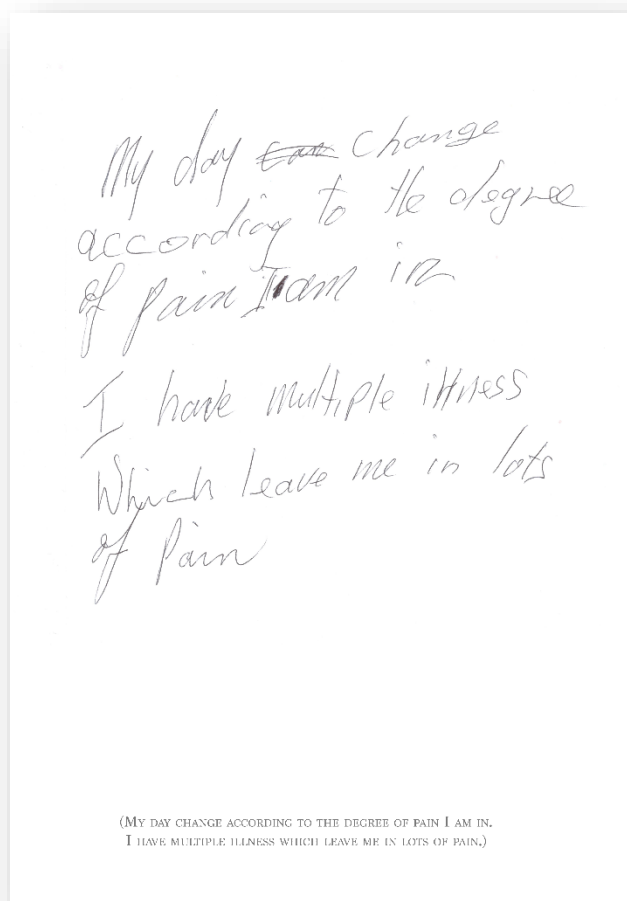 My day change
according to the degree
of pain I am in
I have multiple illness
Which leave me in lots
of Pain
(My day change according to the degree of pain I am in.
I have multiple illness which leave me in lots of pain.)